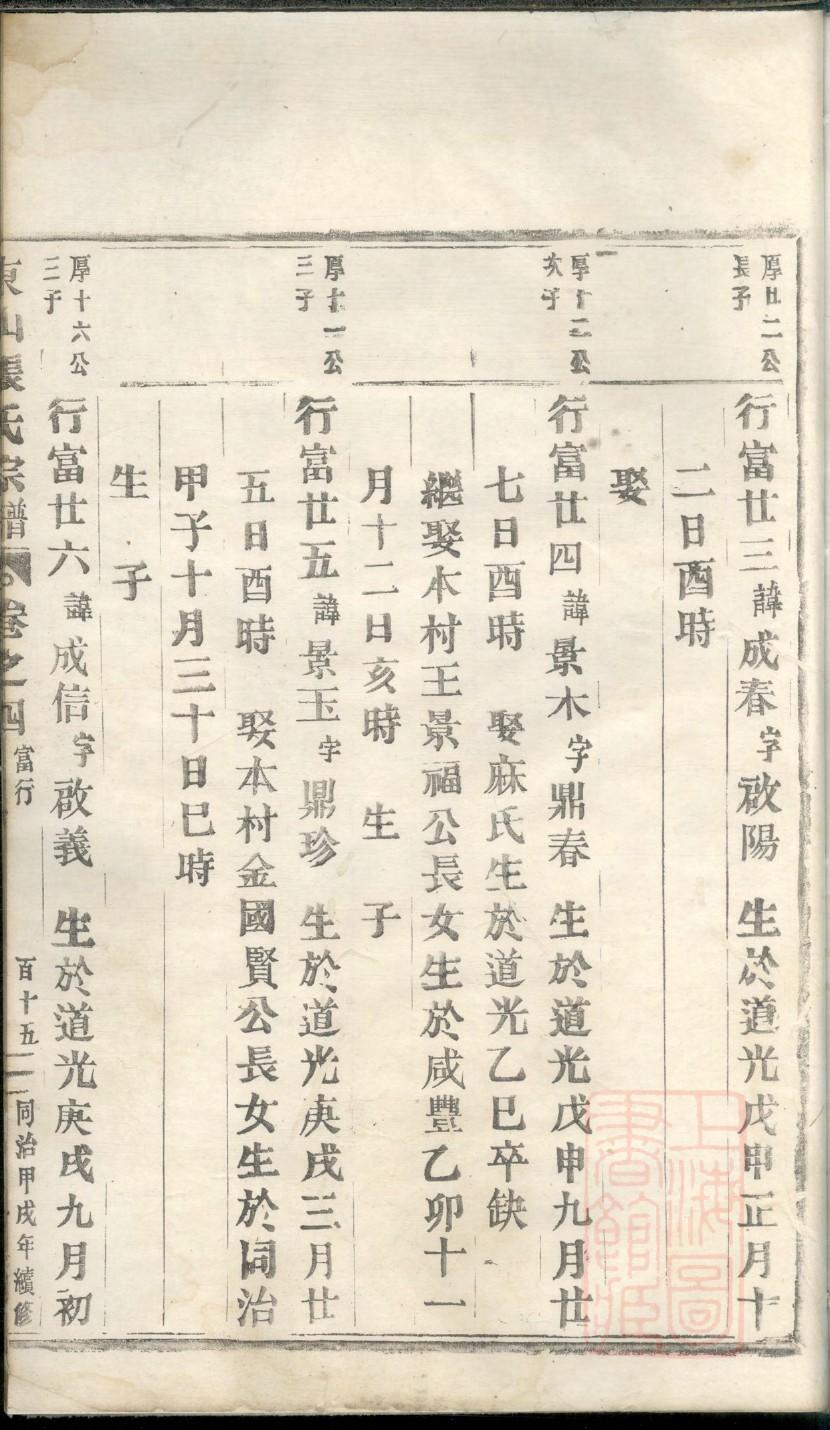 厚廿二公
長子
行富廿三諱成春字啟陽 生於道光戊申正月十
二日酉時
娶
厚十二公
次子
行富廿四諱景木字鼎春 生於道光戊申九月廿
七日酉時 娶麻氏生於道光乙巳卒缺
繼娶本村王景福公長女生於咸豐乙卯十一
月十二日亥時 生 子
厚十一公
三子
行富廿五諱景玉字鼎珍 生於道光庚戌三月廿
五日酉時 娶本村金國賢公長女生於同治
甲子十月三十日巳時
生 子
厚十六公
三子
行富廿六諱成信字啟義 生於道光庚戌九月初
東山張氏宗譜 卷之四 富行 百十五 同治甲戌年續修
上海圖書館藏